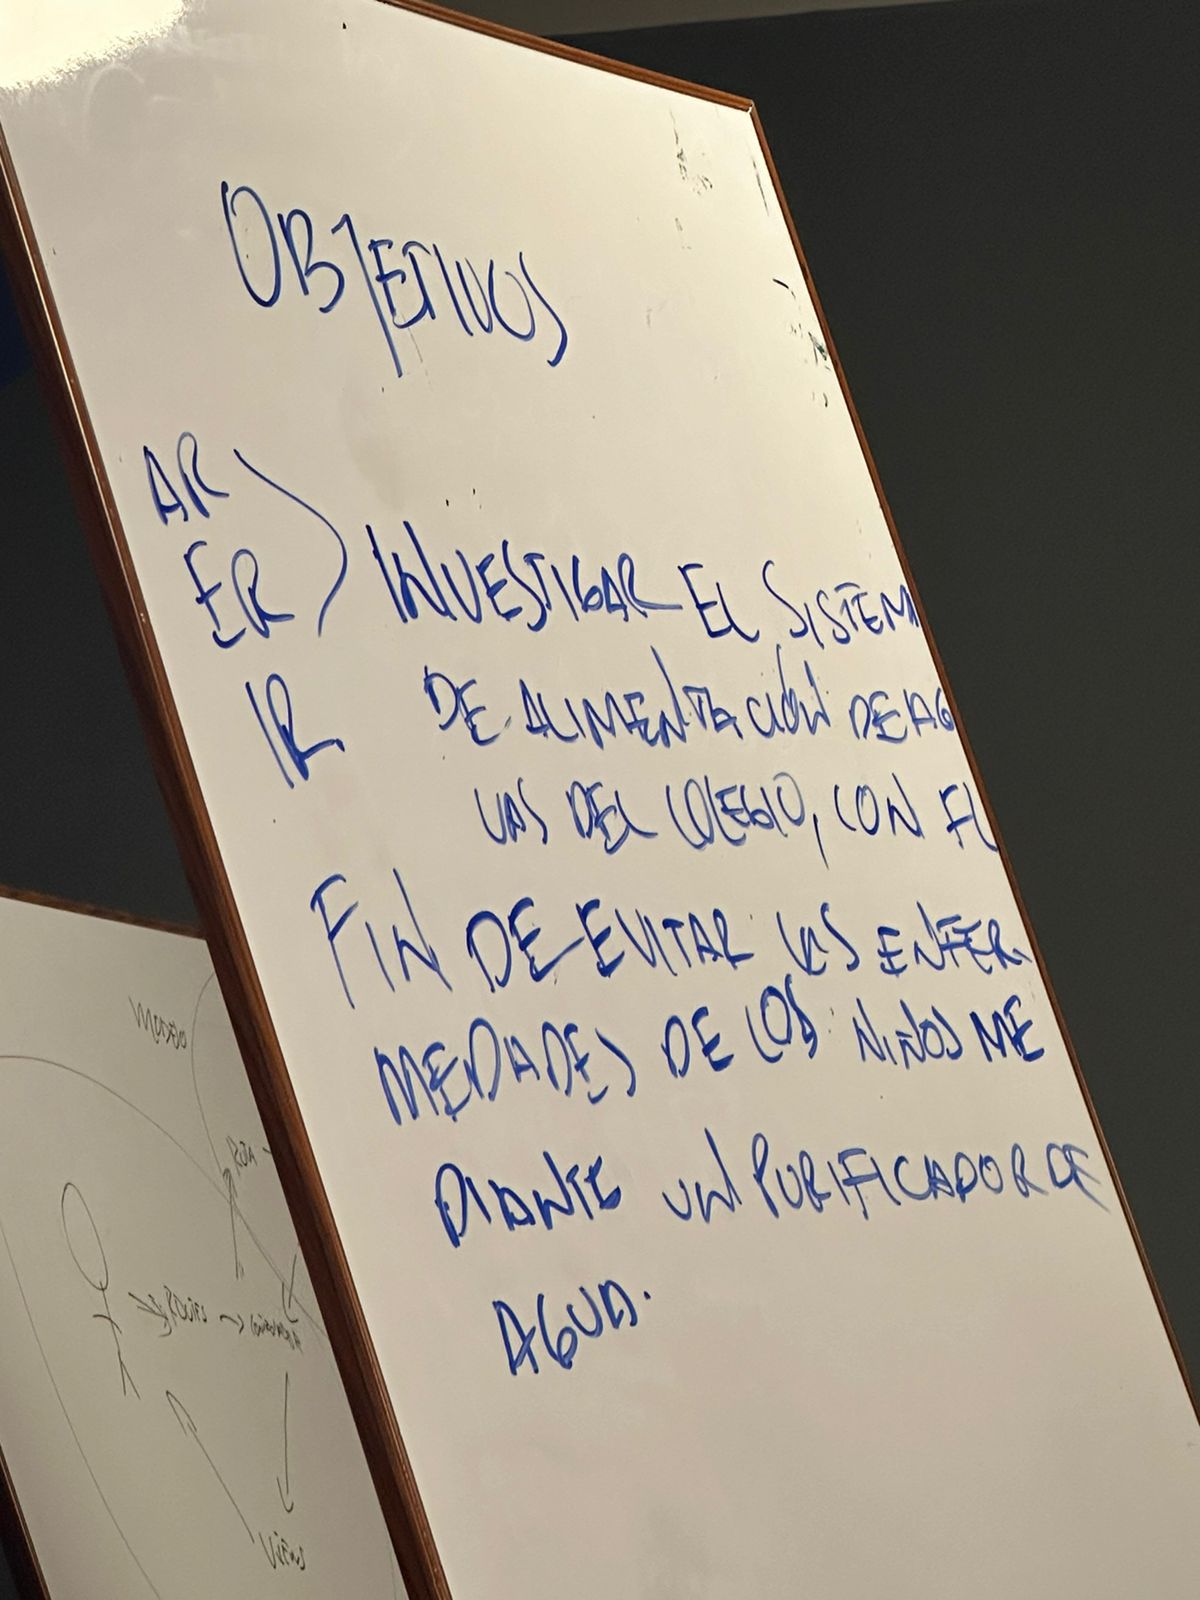 OBJETIVOS
AR
ER
IR
INVESTIGAR EL SISTEMA
DE ALIMENTACIÓN DE AG
UAS DEL COLEGIO, CON EL
FIN DE EVITAR LAS ENFER
MEDADES DE LOS NIÑOS ME
DIANTE UN PURIFICADOR DE
AGUA.
MODELO
RUTA